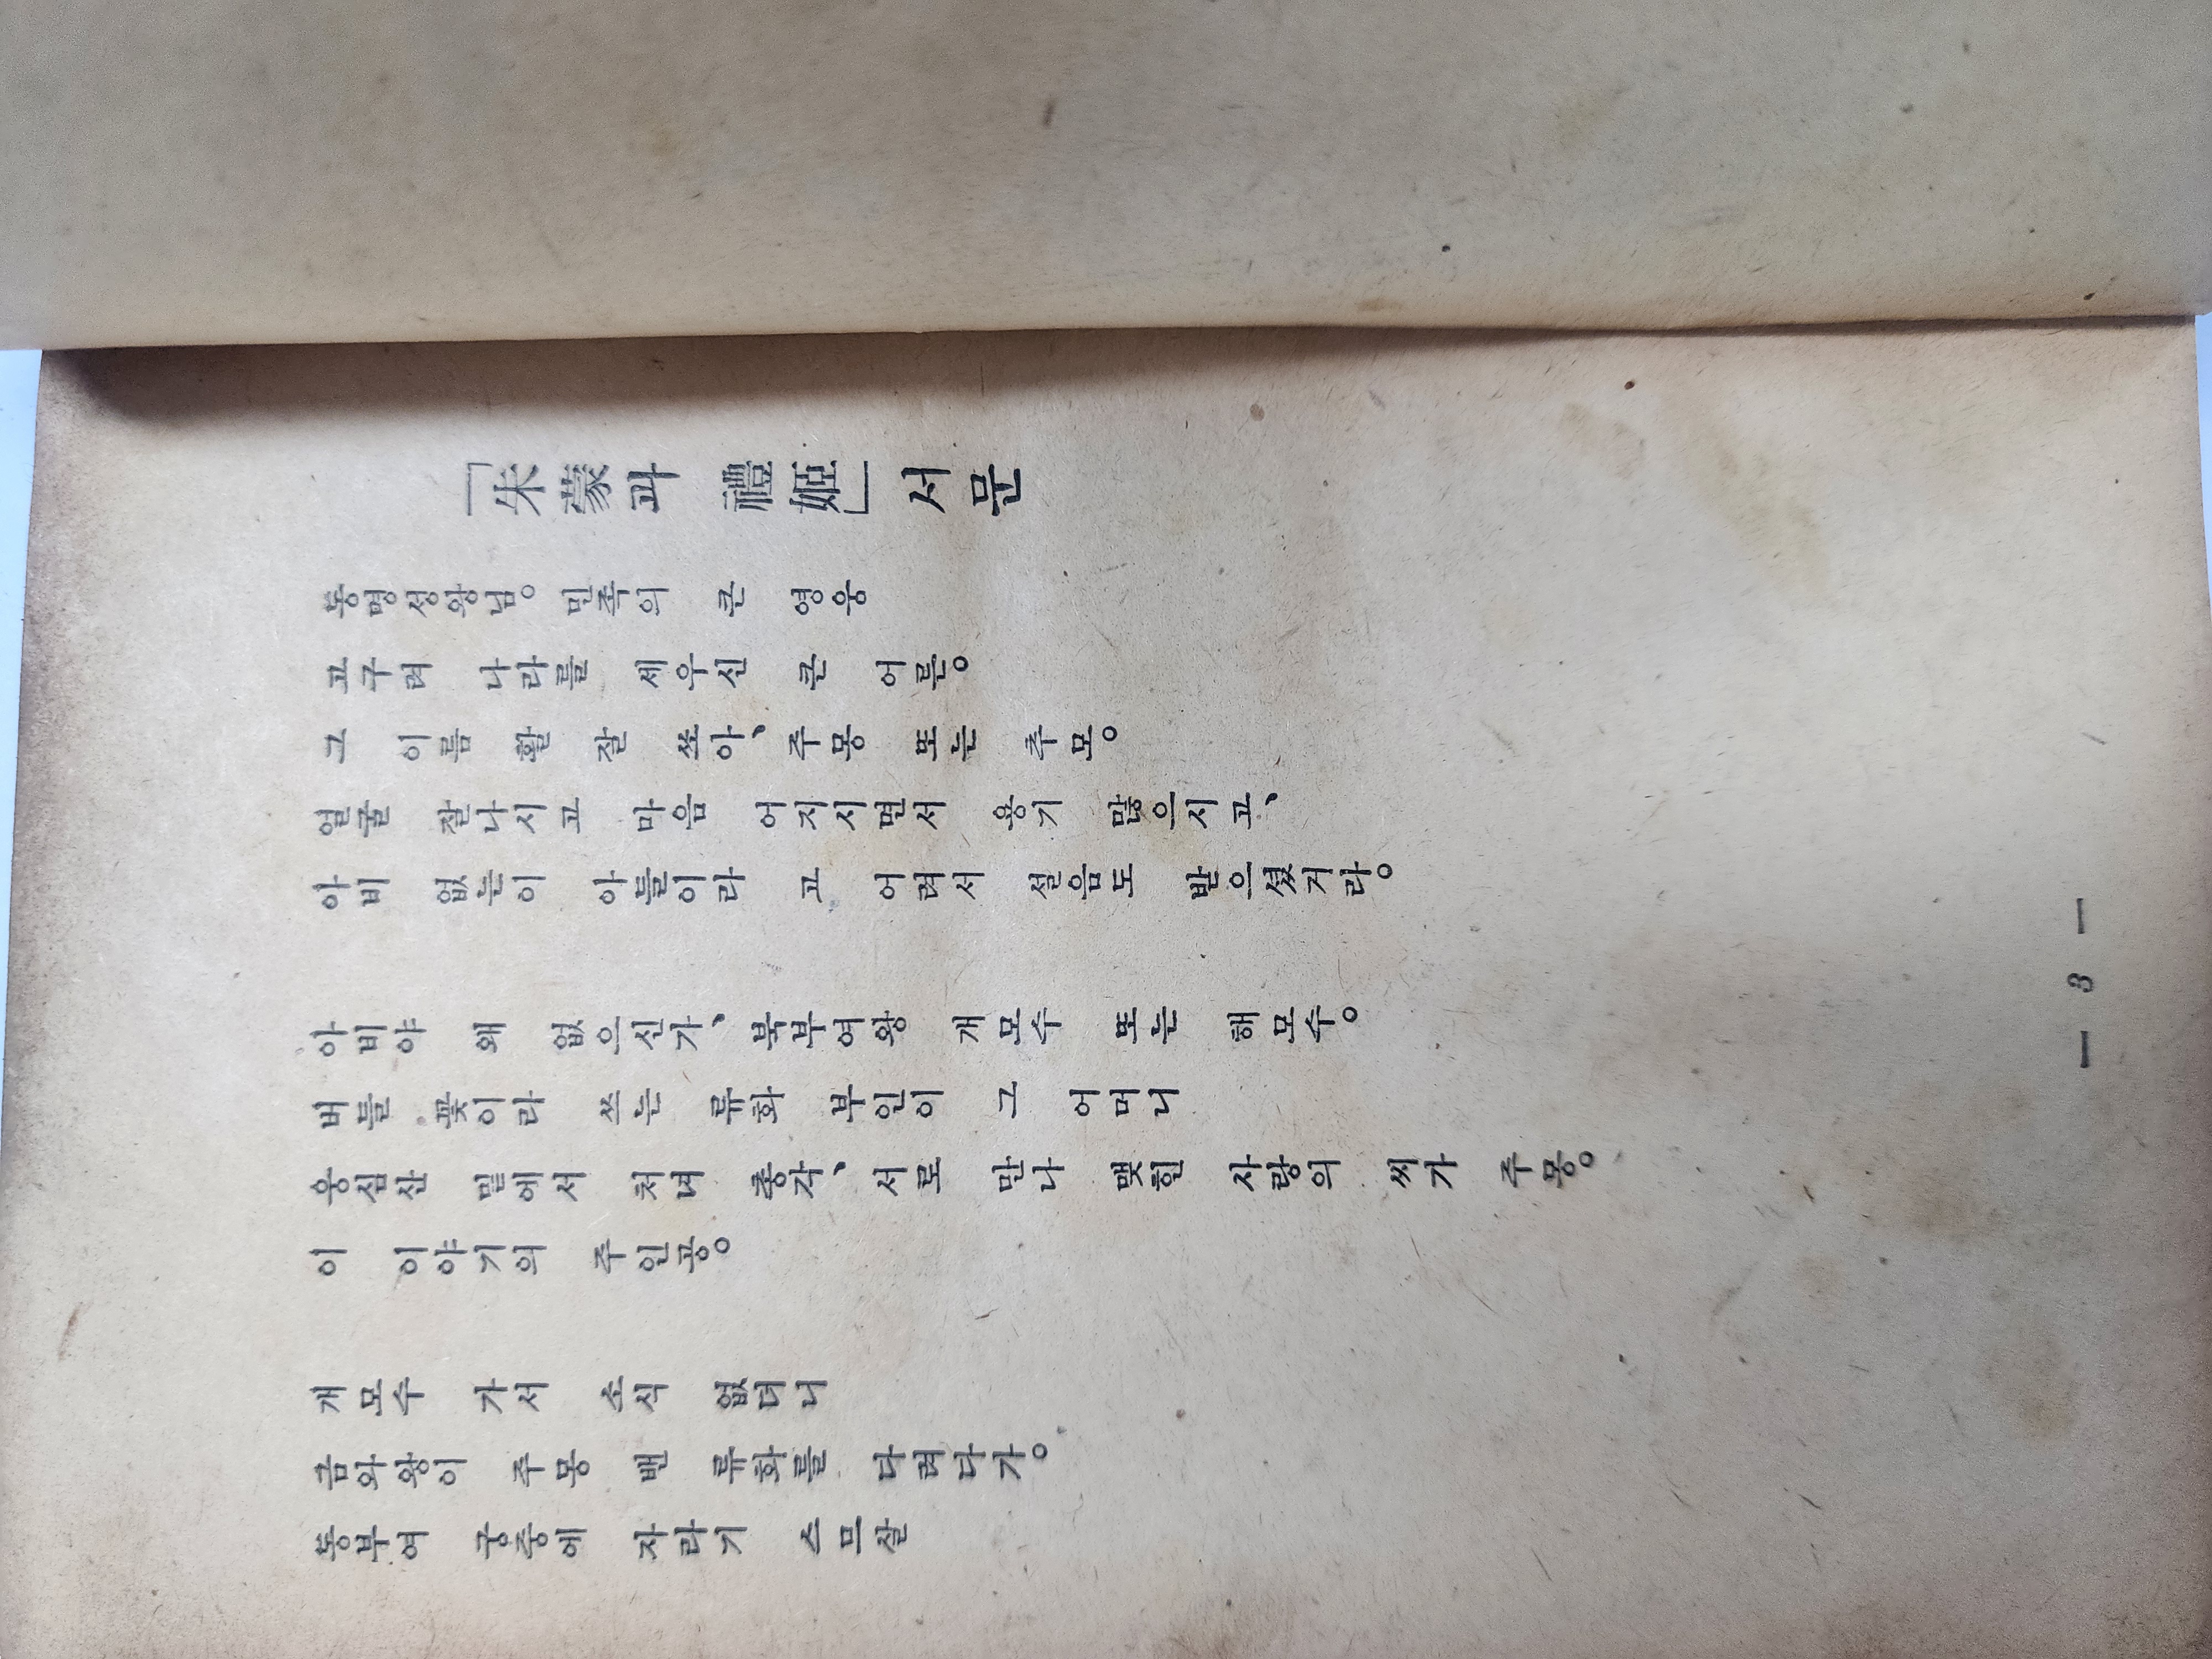 「朱蒙과 禮姬」 서문
동명성왕님。 민족의 큰 영웅
고구려 나라를 세우신 큰 어른。
그 이름 활 잘 쏘아、 주몽 또는 추모。
얼굴 잘나시고 마음 어지시면서 용기 많으시고、
아비 없는이 아들이라 고 어려서 설음도 받으셨거라。
아비야 왜 없으신가、 북부여왕 개모수 또는 해모수。
버들 꽃이라 쓰는 류화 부인이 그 어머니
웅심산 밑에서 처녀 총각、 서로 만나 맺힌 사랑의 씨가 주몽。
이 이야기의 주인공。
개모수 가서 소식 없더니
금와왕이 주몽 밴 류화를 다려다가。
동부여 궁중에 자라기 스므살
— 3 —